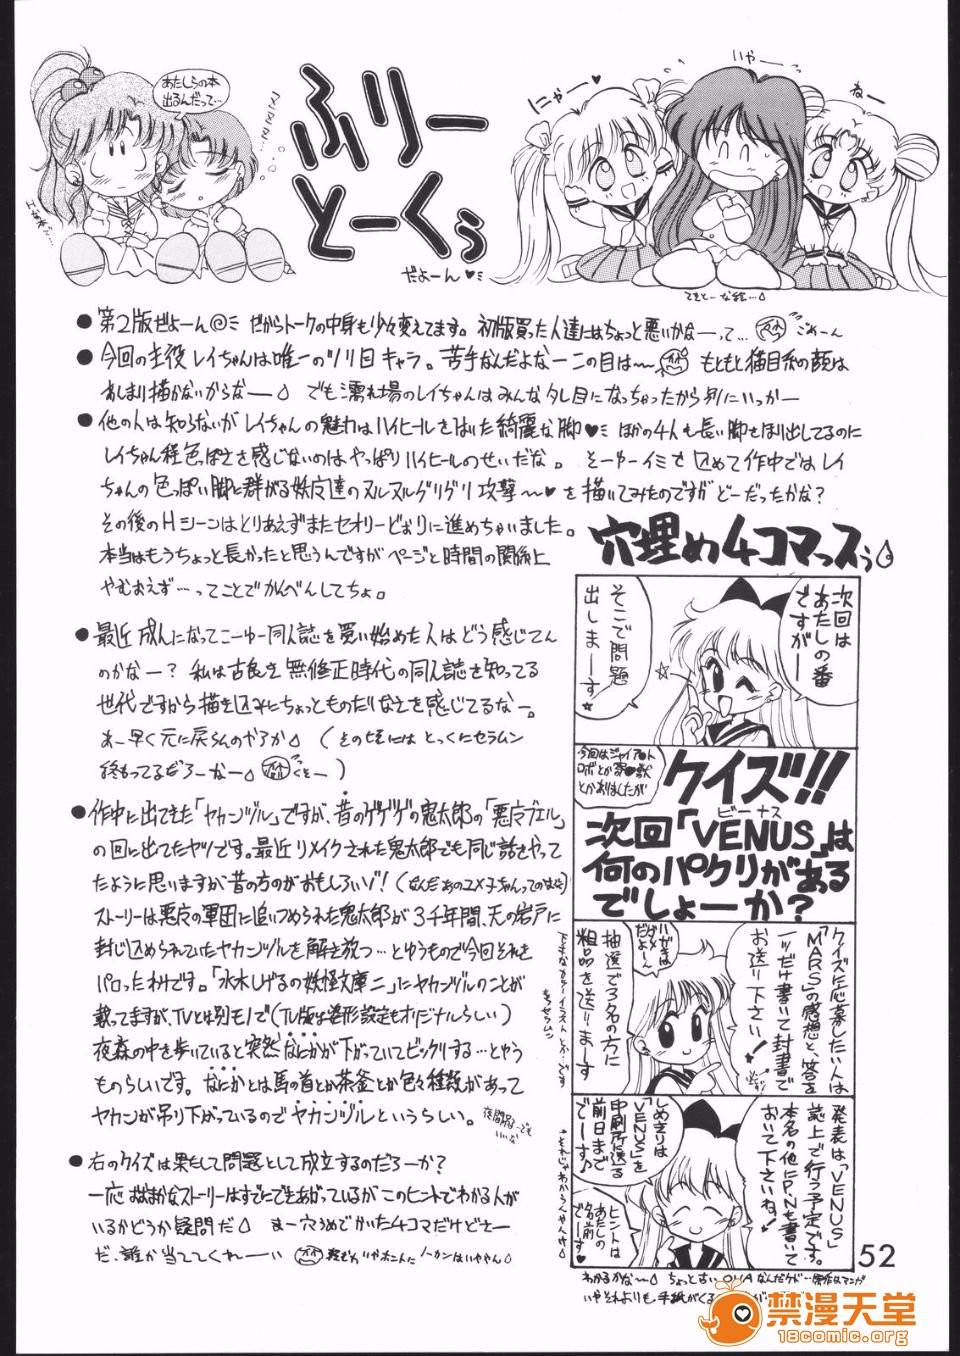 あたしらの本
出るんだって…
ふりー
とーくぅ
だよーん♥ミ
にゃー♥
いやー
ねー
てきとーな絵…
● 第2版だよーん◎ミ だからトークの中身も少々変えてます。初版買った人達にはちょっと悪いかなーって… ごめーん
● 今回の主役レイちゃんは唯一のツリ目キャラ。苦手なんだよなーこの目は〜 もともと猫目系の顔は
あんまり描かないからなー でも濡れ場のレイちゃんはみんなタレ目になっちゃったから別にいっかー
● 他の人は知らないがレイちゃんの魅力はハイヒールをはいた綺麗な脚♥ミ ほかの4人も長い脚をほり出してるのに
レイちゃん程色っぽさを感じないのはやっぱりハイヒールのせいだな。そーゆーイミを込めて作中ではレイ
ちゃんの色っぽい脚に群がる妖魔達のヌルヌルグリグリ攻撃〜♥を描いてみたのですがどーだったかな?
その後のHシーンはとりあえずまたセオリーどおりに進めちゃいました。
本当はもうちょっと長かったと思うんですがページと時間の関係上
やむおえず…ってことでかんべんしてちょ。
● 最近成人になってこーゆー同人誌を買い始めた人はどう感じてん
のかなー? 私は古良き無修正時代の同人誌を知ってる
世代ですから描き込みにちょっとものたりなさを感じてるなー。
あー早く元に戻らんのやろか (その時にはとっくにセラムン
終わってるだろーなー くそー)
● 作中に出てきた「ヤカンヅル」ですが、昔のゲゲゲの鬼太郎の「悪魔ブエル」
の回に出てたヤツです。最近リメイクされた鬼太郎でも同じ話をやって
たように思いますが昔の方のがおもしろいゾ!(なんだあのユメ子ちゃんってのは)
ストーリーは悪魔の軍団に追いつめられた鬼太郎が3千年間、天の岩戸に
封じ込められていたヤカンヅルを解き放つ…とゆうもので今回それを
パロったわけです。「水木しげるの妖怪文庫二」にヤカンヅルのことが
載ってますが、TVとは別モノで(TV版は姿形設定もオリジナルらしい)
夜森の中を歩いていると突然なにかが下がっていてビックリする…とゆう
ものらしいです。なにかとは馬の首とか茶釜とか色々種類があって
ヤカンが吊り下がっているのでヤカンヅルというらしい。
● 右のクイズは果たして問題として成立するのだろーか?
一応おおまかなストーリーはすでにできあがっているがこのヒントでわかる人が
いるかどうか疑問だ まー穴うめでかいた4コマだけどさー
だ、誰か当ててくれーい
穴埋め4コマっスぅ
次回は
あたしの番
ですがー
そこで問題
出しまーす★
今回はジャイア●ト
ロボとか
とかありましたが
クイズ!!
ビーナス
次回「VENUS」は
何のパクリがある
でしょーか?
クイズに応募したい人は
「MARS」の感想と、答を
一ツだけ書いて封書で
お送り下さい!
ハガキは
ダメ
だよーん
抽選で3名の方に
粗品を送ります
発表は「VENUS」
誌上で行う予定です。
本名の他にP・Nも書いて
おいて下さいね!
しめきりは
「VENUS」を
印刷所に送る
前日まで
でーす♪
ヒントは
あたしの
名前
でーす♥
わかるかなー ちょっと古いOVAなんだケド…原作はマンガ
いやそれよりも手紙がくる
52
禁漫天堂
18comic.org